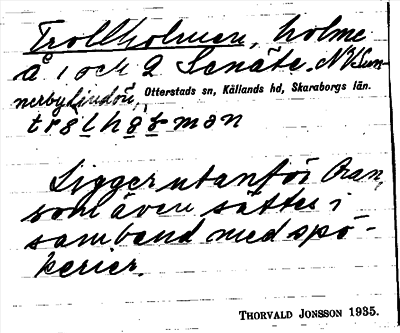 Trollholmen, holme
å 1 och 2 Senäte. NV Sun-
nerby
Otterstads sn, Kållands hd, Skaraborgs län.
Ligger utanför Åran,
som även sättes i
samband med spö-
kerier.
THORVALD JONSSON 1935.